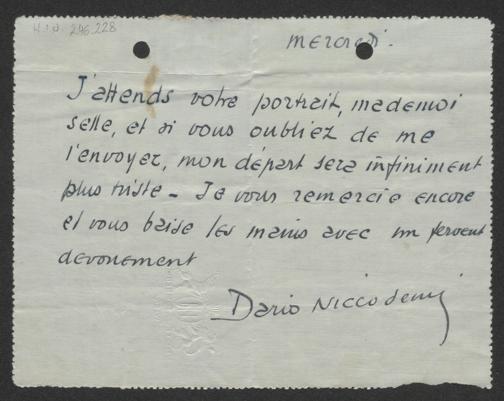 H.I.N. 296.228
mercredi.
J'attends votre portrait, mademoi
selle, et si vous oubliez de me
l'envoyer, mon départ sera infiniment
plus triste - Je vous remercie encore
et vous baise les mains avec un fervent
devouement
Dario Niccodemi